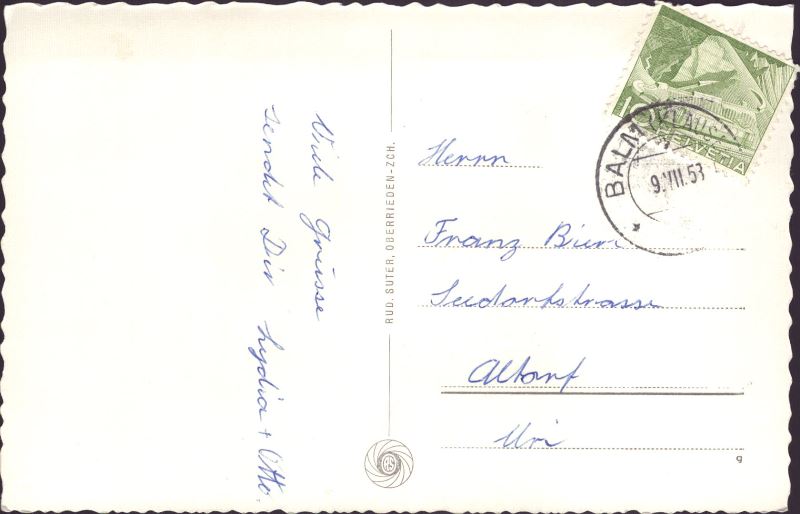 Viele Grüsse
sendet Dir Lydia + Otto.
RUD. SUTER, OBERRIEDEN-ZCH.
10
HELVETIA
BALM KLAUS
9.VII.53
Herrn
Franz
Seedorfstrasse
Altorf
Uri
g